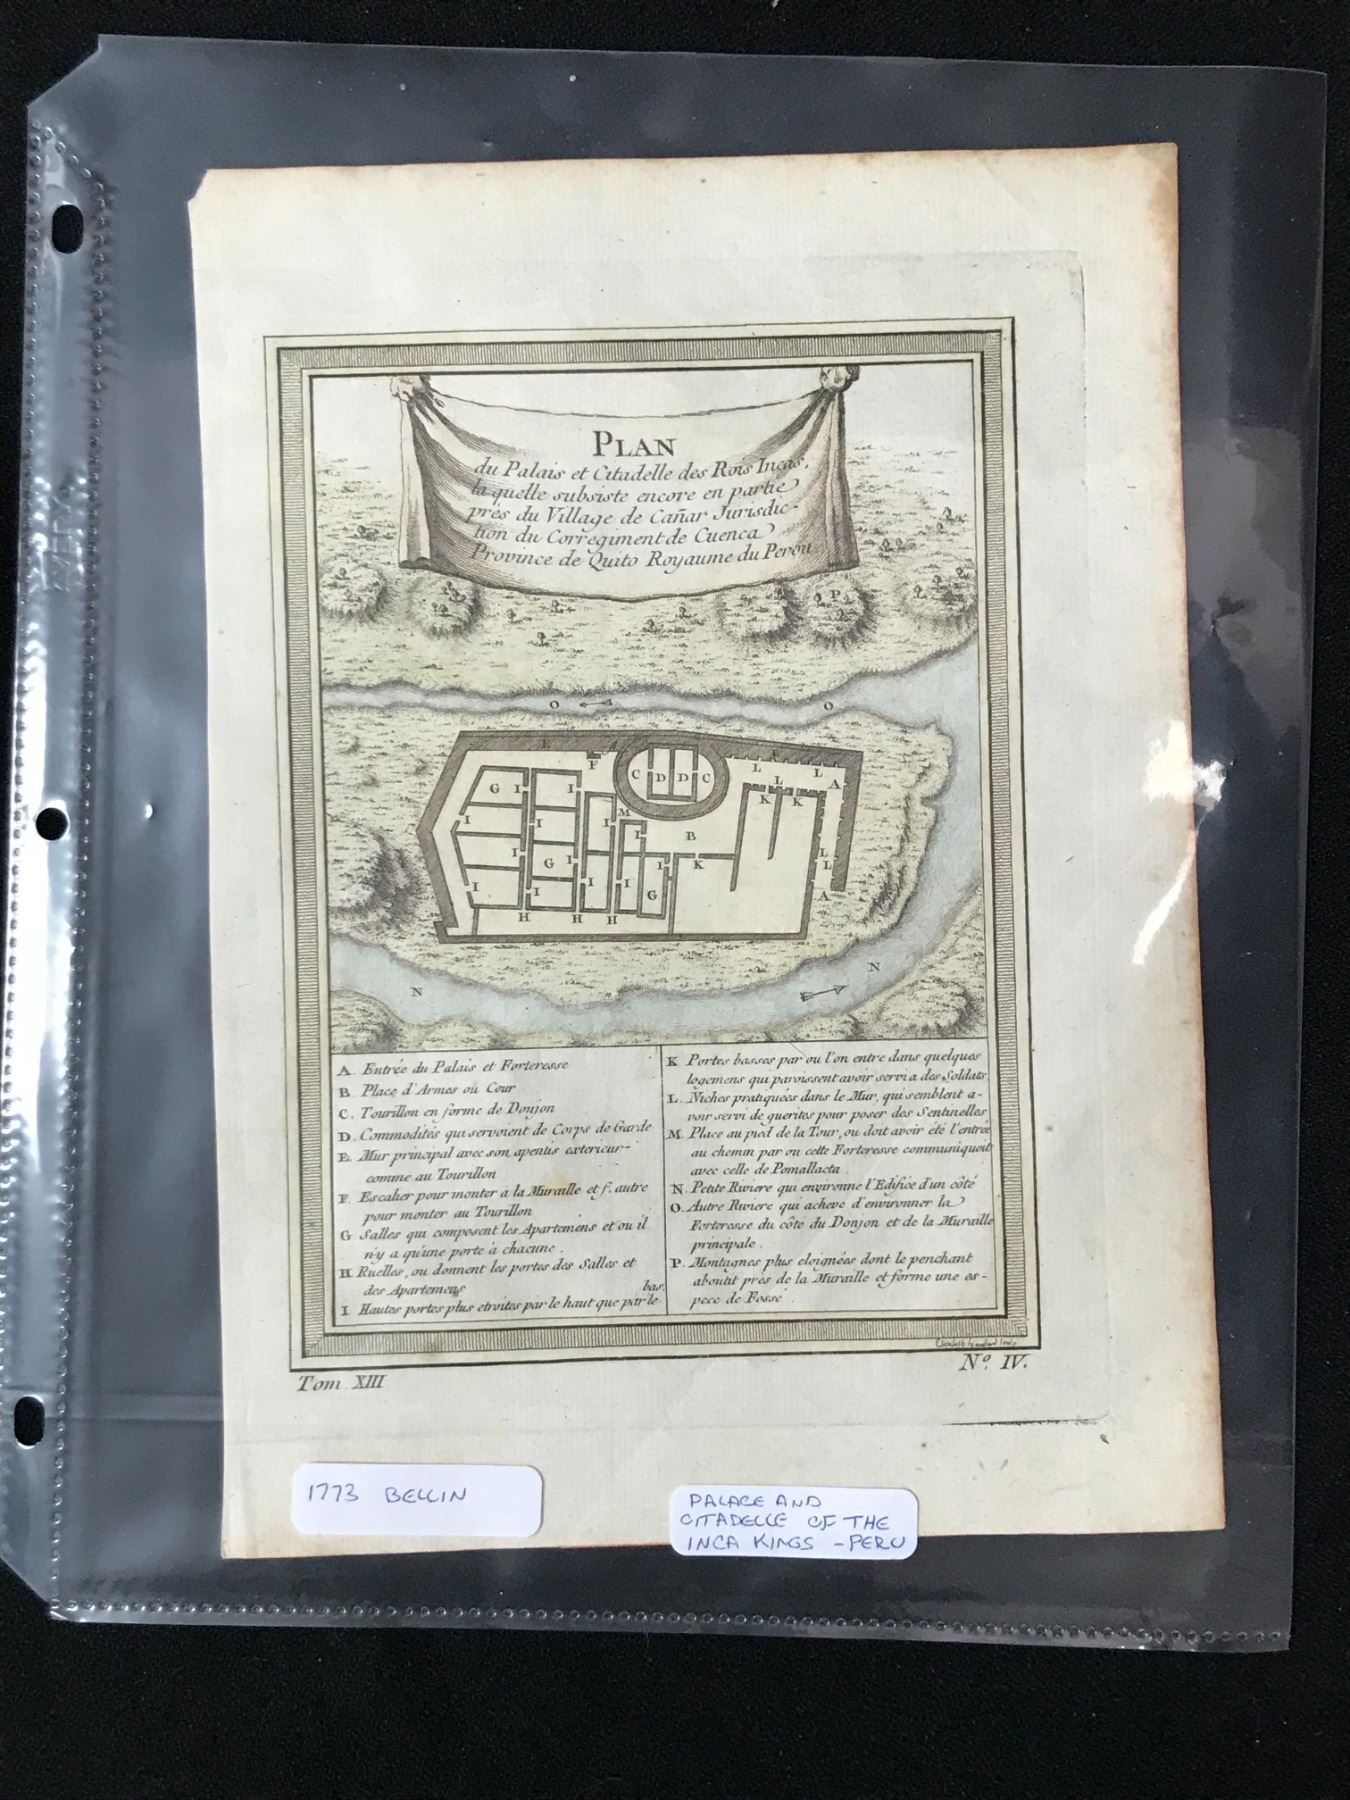 PLAN
du Palais et Citadelle des Rois Incas,
la quelle subsiste encore en partie
près du Village de Cañar Jurisdic-
tion du Corregiment de Cuenca
Province de Quito Royaume du Perou
P
O
O
E
E
F
C
D
D
C
L
L
L
A
K
K
G
I
I
M
I
I
I
I
B
I
G
I
I
K
L
L
I
I
I
I
G
A
H
H
H
N
N
A. Entrée du Palais et Forteresse
B. Place d'Armes ou Cour
C. Tourillon en forme de Donjon
D. Commodités qui servoient de Corps de Garde
E. Mur principal avec son apentis exterieur
comme au Tourillon
F. Escalier pour monter a la Muraille et f. autre
pour monter au Tourillon
G Salles qui composent les Apartemens et ou il
n'y a qu'une porte à chacune.
H Ruelles, ou donnent les portes des Salles et
des Apartemens bas.
I Hautes portes plus etroites par le haut que par le
K Portes basses par ou l'on entre dans quelques
logemens qui paroissent avoir servi a des Soldats
L. Niches pratiquées dans le Mur, qui semblent a-
voir servi de guerites pour poser des Sentinelles
M. Place au pied de la Tour, ou doit avoir été l'entrée
au chemin par ou cette Forteresse communiquoit
avec celle de Pomallacta.
N. Petite Riviere qui environne l'Edifice d'un côté
O. Autre Riviere qui acheve d'environner la
Forteresse du côté du Donjon et de la Muraille
principale.
P. Montagnes plus eloignées dont le penchant
aboutit près de la Muraille et forme une es-
pece de Fossé.
Tom XIII
Nº. IV.
1773 BELLIN
PALACE AND
CITADELLE OF THE
INCA KINGS - PERU